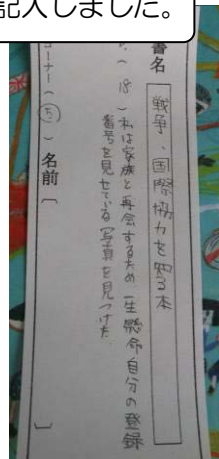 記入しました。
書名
戦争、国際協力を知る本
(18)私は家族と再会するため一生懸命自分の登録
番号を見せている写真を見つけた。
コーナー( )名前〔 〕